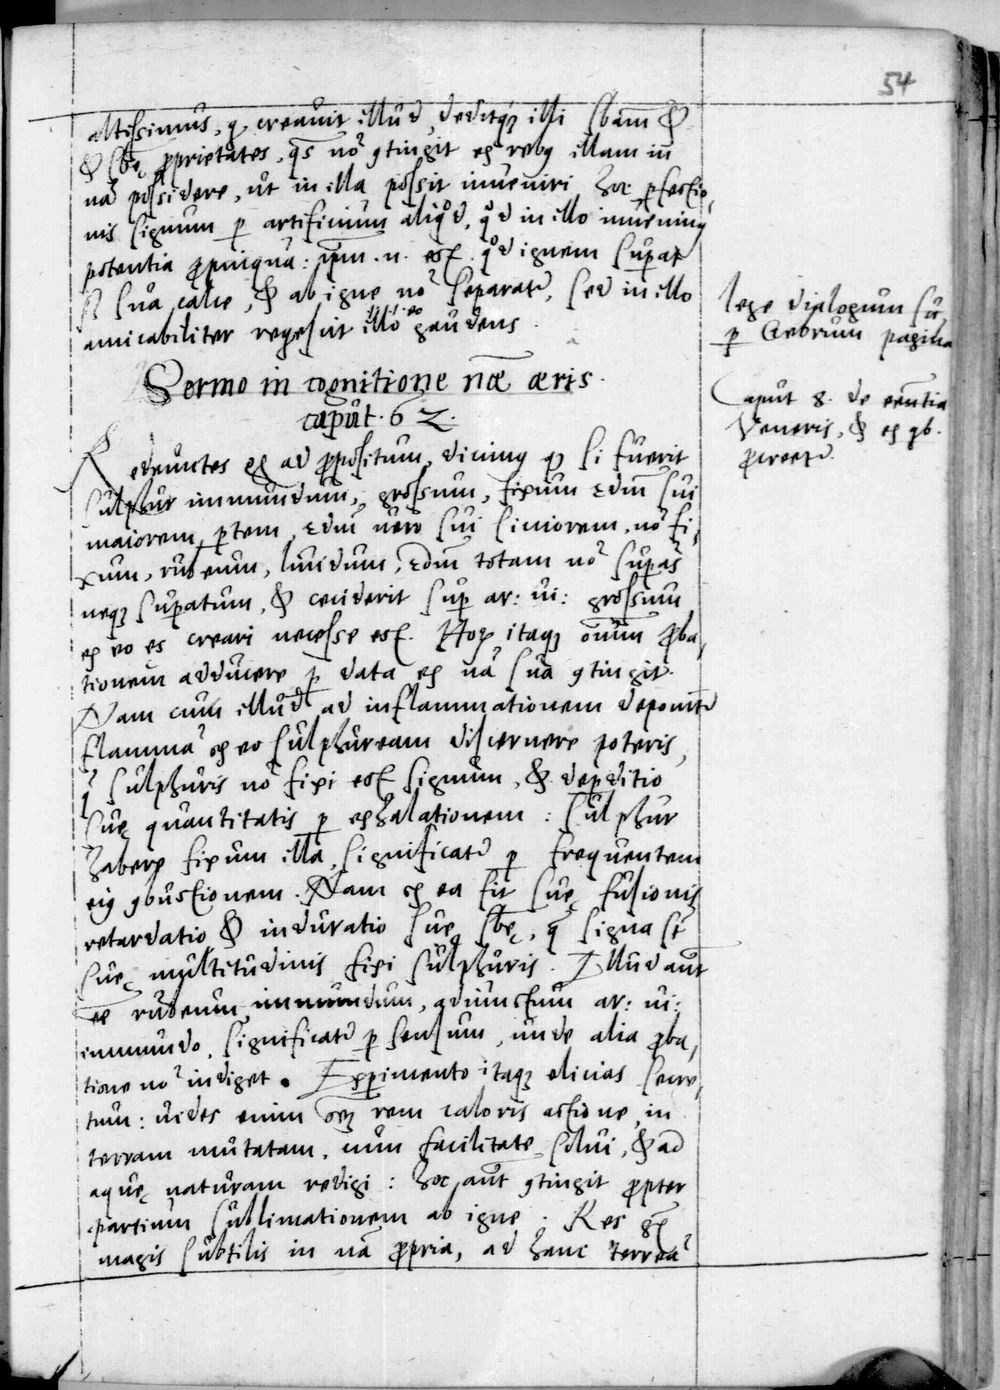 54
altissimus, q̨ creauit illud, deditq́ȝ illi sbām &
& sbę p̱prietates, q̄s nō ꝯtingit ex rebꝯ illam in
nā possidere, ut in illa possit inueniri hoc ꝑfectio,
nis signum ꝑ artificium aliqͦd, qͦd in illo inuenimꝯ
potentia ꝓpinqua: ip̄m .n. est. qͦd ignem suꝑat
sua calie, & ab igne nō separatͬ, sed in illo
amicabiliter reqescit illo gaudens.
Sermo in cognitione nāe aeris.
caput. 62.
Redeuntes ad ꝓpositum, dicimꝯ qȝ si fuerit
sulphur immundum, grossum, fixum sui
maiorem ꝑtem, uero sui minorem, nō fi,
xum, rubeum, liuidum, totam nō suꝑās
neqȝ suꝑatum, & ceciderit suꝑ ar: ui: grossum
ex eo es creari necesse est. Hoȝ itaqȝ oīum ꝓba,
tionem adducere ꝑ data ex nā sua ꝯtingit.
Nam cum illud ad inflammationem deponitͬ
flammā ex eo sulphuream discernere poteris,
q̄ sulphuris nō fixi est signum, & deꝑditio
suę quantitatis ꝑ exhalationem: sulphur
habere fixum illa, significatͬ ꝑ frequentem
eiꝯ ꝯbustionem. Nam ex ea fit suę fusionis
retardatio & induratio suę sbę, q̄ signa st̄
suę multitudinis fixi sulphuris. Illud aut̄
ēe rubeum immundum, adiunctum ar: ui:
immundo, significatͬ ꝑ sensum, unde alia ꝓba,
tione nō indiget. Exꝑimento itaqȝ elicias secre,
tum: uides enim oēȝ rem caloris actione, in
terram mutatam, cum facilitate solui, & ad
aquę naturam redigi: hoc aut̄ ꝯtingit ꝓpter
partium sublimationem ab igne. Res
magis subtilis in nā ꝓpria, ad hanc terreā
lege dialogum
ꝑ Gebrum pagina
Caput 8. de eēntia
Veneris, & ex qb.
ꝓcreetͬ.